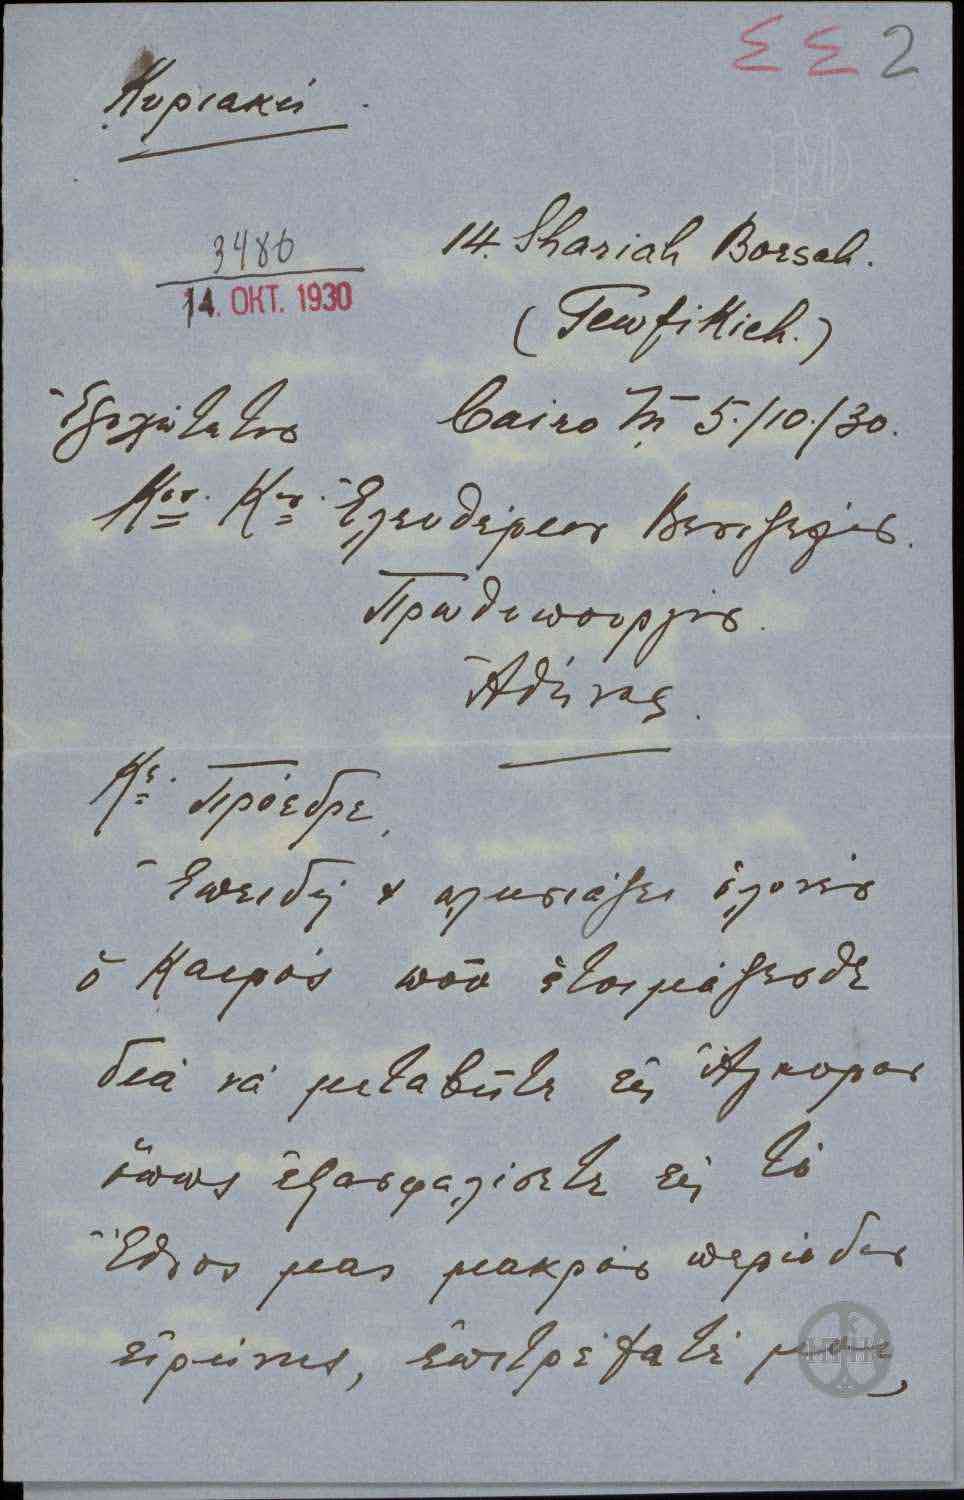 ΣΣ 2
Κυριακή.
3486
14. ΟΚΤ. 1930
14. Shariah Borsah.
(Tewfikieh.)
Ἐξοχώτατον
Cairo τῇ 5./10./30.
Κον. Κον. Ἐλευθέριον Βενιζέλον.
Πρωθυπουργόν.
Ἀθήνας.
Κε. Πρόεδρε,
Ἐπειδὴ πλησιάζει ὁλονέν
ὁ Καιρός ποῦ ἑτοιμάζεσθε
διά νά μεταβῆτε εἰς Ἄγκυραν
ὅπως ἐξασφαλίσετε εἰς τό
Ἔθνος μας μακράν περίοδον
εἰρήνης, ἐπιτρέψατέ μου,